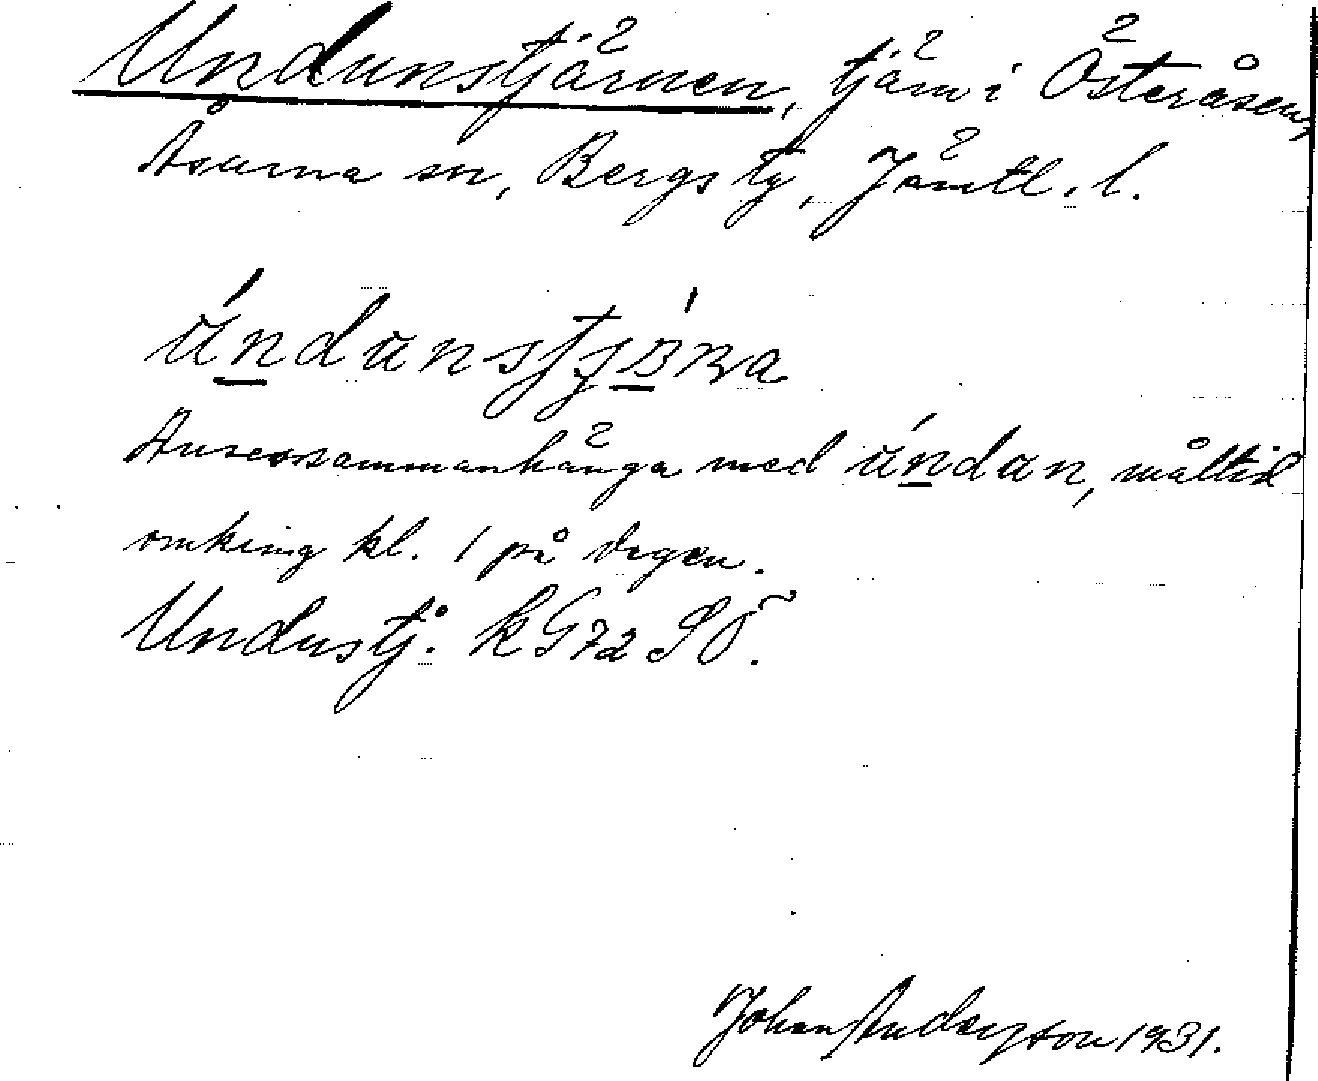 Undunstjärnen, tjärn i Österåsen,
Åsarna sn, Bergs tg, Jämtl. l.
úndanstjɞ́ɴa
Anses sammanhänga med úndan, måltid
omkring kl. 1 på dagen.
Undustj. kG72SÖ.
Johan Anderzson 1931.